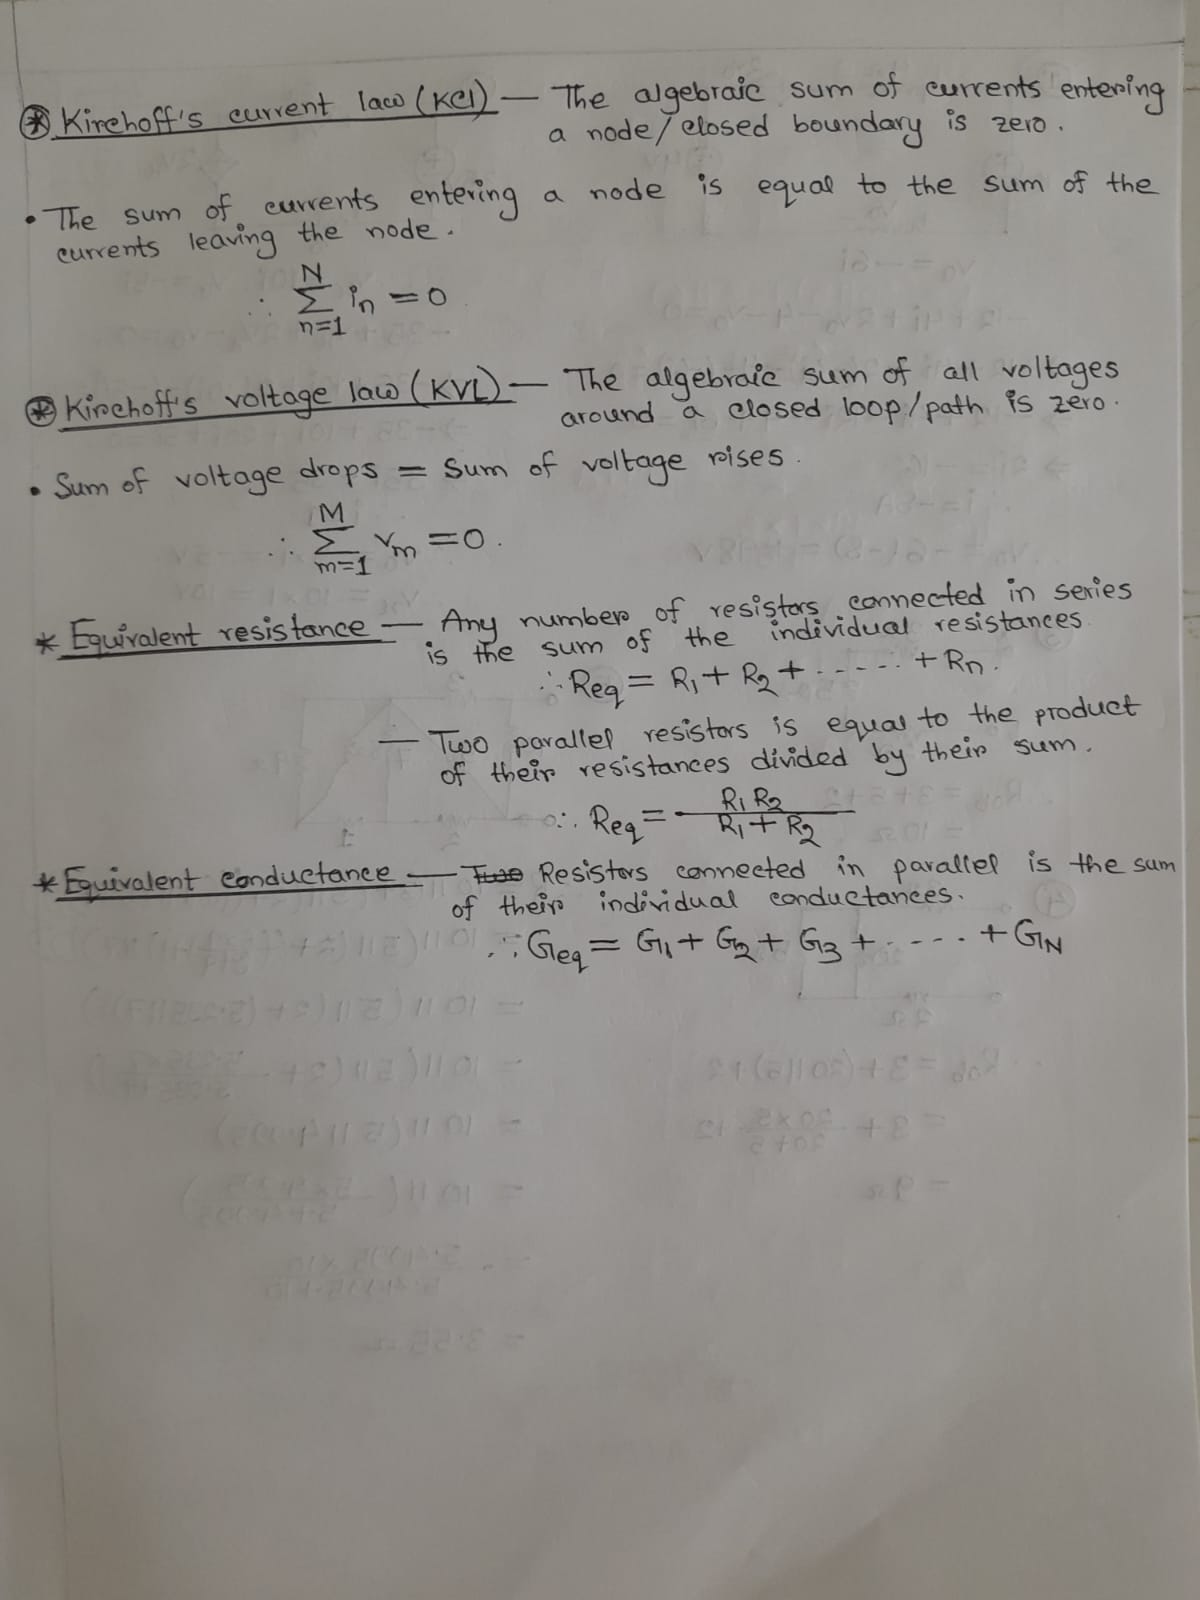 ⊛ Kirchoff's current law (KCl) — The algebraic sum of currents entering
a node/closed boundary is zero.
• The sum of currents entering a node is equal to the sum of the
currents leaving the node.
∴ N
Σ iₙ = 0
n=1
⊛ Kirchoff's voltage law (KVL) — The algebraic sum of all voltages
around a closed loop/path is zero.
• Sum of voltage drops = Sum of voltage rises.
∴ M
Σ vₘ = 0.
m=1
* Equivalent resistance — Any number of resistors connected in series
is the sum of the individual resistances
∴ Req = R₁ + R₂ + ...... + Rn.
— Two parallel resistors is equal to the product
of their resistances divided by their sum.
∴ Req = R₁ R₂ / R₁ + R₂
* Equivalent conductance — Two Resistors connected in parallel is the sum
of their individual conductances.
∴ Geq = G₁ + G₂ + G₃ + ..... + GN